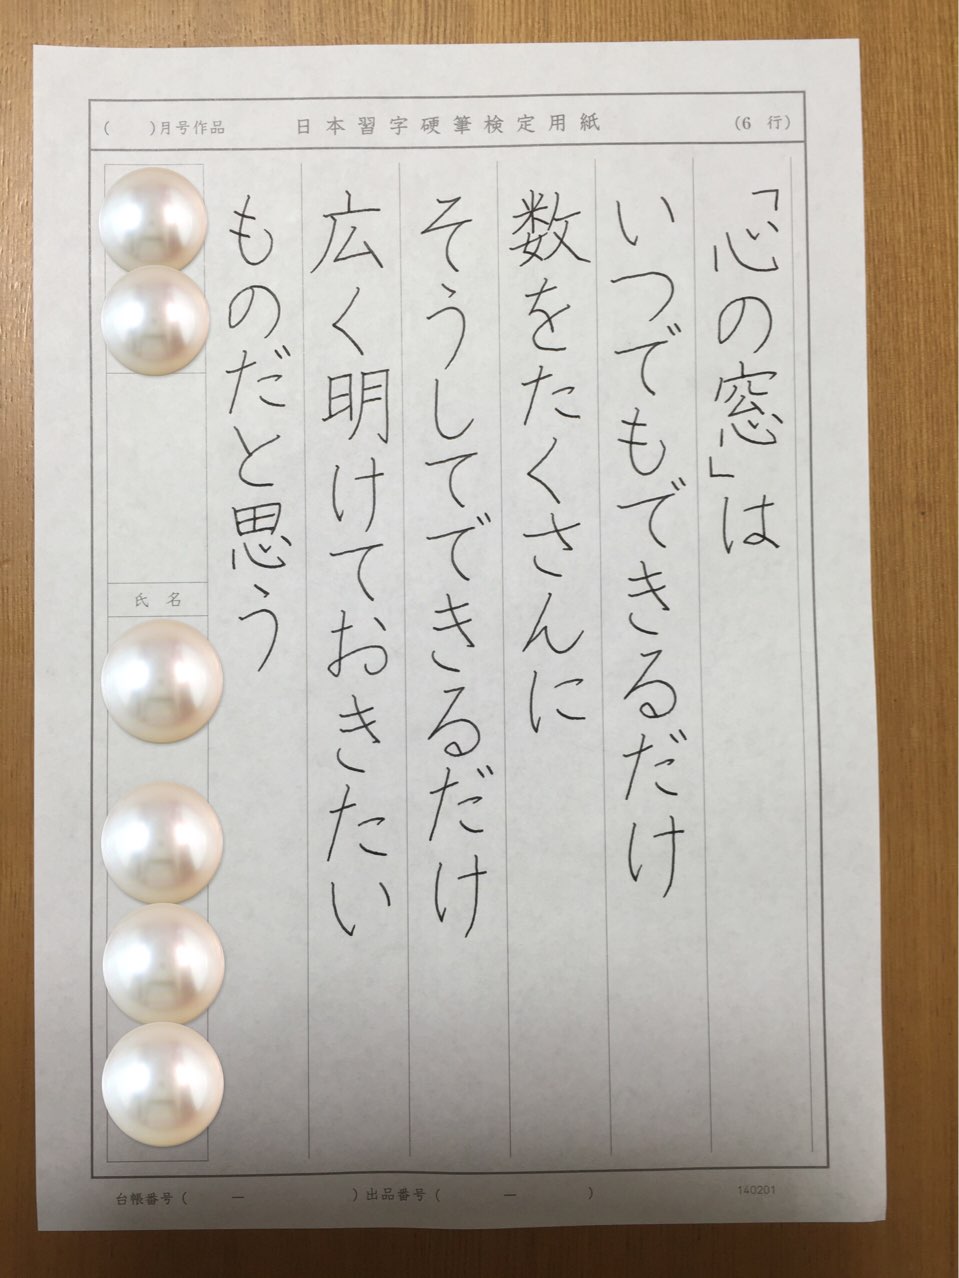 ( )月号作品 日本習字硬筆検定用紙 (6 行)
「心の窓」は
いつでもできるだけ
数をたくさんに
そうしてできるだけ
広く明けておきたい
ものだと思う
氏名
台帳番号( ー )出品番号( ー )
140201